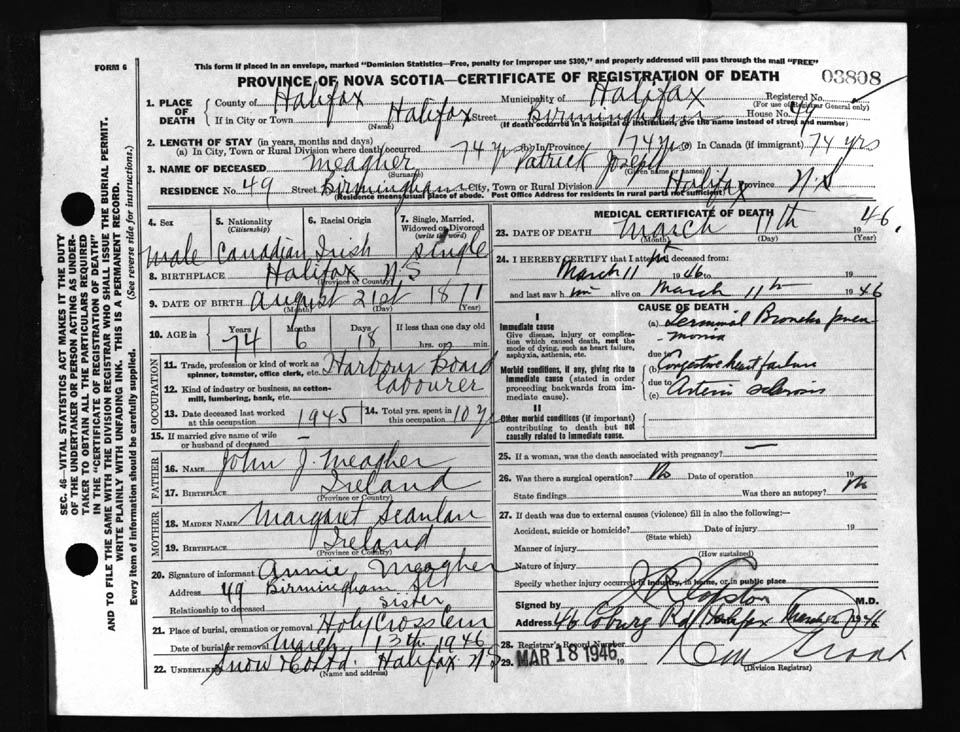 FORM 6
This form if placed in an envelope, marked "Dominion Statistics—Free, penalty for improper use $300," and properly addressed will pass through the mail "FREE"
PROVINCE OF NOVA SCOTIA—CERTIFICATE OF REGISTRATION OF DEATH
03808
1. PLACE OF DEATH
County of Halifax Municipality of Halifax Registered No.
(For use of Registrar General only)
If in City or Town Halifax Street Birmingham House No. 49
(Name) (If death occurred in a hospital or institution, give the name instead of street and number)
2. LENGTH OF STAY (in years, months and days)
(a) In City, Town or Rural Division where death occurred 74 yrs (b) In Province 74 yrs (c) In Canada (if immigrant) 74 yrs
3. NAME OF DECEASED Meagher Patrick Joseph
(Surname) (Given name or names)
RESIDENCE No. 49 Street Birmingham City, Town or Rural Division Halifax Province N.S
(Residence means usual place of abode. Post Office Address for residents in rural parts not sufficient)
4. Sex
male
5. Nationality
(Citizenship)
Canadian
6. Racial Origin
Irish
7. Single, Married, Widowed or Divorced
(write the word)
Single
8. BIRTHPLACE Halifax N.S
9. DATE OF BIRTH August 21st 1871
(Month) (Day) (Year)
10. AGE in Years Months Days If less than one day old
74 6 18 hrs. or min.
OCCUPATION
11. Trade, profession or kind of work as spinner, teamster, office clerk, etc. Harbour Board
labourer
12. Kind of industry or business, as cotton-mill, lumbering, bank, etc.
13. Date deceased last worked at this occupation 1945
14. Total yrs. spent in this occupation 10 yrs
15. If married give name of wife or husband of deceased —
FATHER
16. NAME John J. Meagher
17. BIRTHPLACE Ireland
(Province or Country)
MOTHER
18. MAIDEN NAME Margaret Scanlan
19. BIRTHPLACE Ireland
(Province or Country)
20. Signature of informant Annie Meagher
Address 49 Birmingham St
Relationship to deceased sister
21. Place of burial, cremation or removal Holy Cross Cem
Date of burial or removal March 13th 1946
22. UNDERTAKER Snow Co Ltd. Halifax N.S
(Name and address)
MEDICAL CERTIFICATE OF DEATH
23. DATE OF DEATH March 11th 1946
(Month) (Day) (Year)
24. I HEREBY CERTIFY that I attended deceased from
March 11 1946 to 19
and last saw him alive on March 11th 1946
CAUSE OF DEATH
I
Immediate cause
Give disease, injury or complication which caused death, not the mode of dying, such as heart failure, asphyxia, asthenia, etc.
(a) Terminal Broncho pneu
monia
due to
Morbid conditions, if any, giving rise to immediate cause (stated in order proceeding backwards from immediate cause).
(b) Congestive heart failure
due to
(c) Arterio sclerosis
II
Other morbid conditions (if important) contributing to death but not causally related to immediate cause.
25. If a woman, was the death associated with pregnancy? —
26. Was there a surgical operation? No Date of operation 19
State findings Was there an autopsy? No
27. If death was due to external causes (violence) fill in also the following:—
Accident, suicide or homicide? Date of injury 19
(State which)
Manner of injury
(How sustained)
Nature of injury
Specify whether injury occurred in industry, in home, or in public place
Signed by M.D.
Address 46 Coburg Rd Halifax March 12 1946
28. Registrar's Record Number
29. MAR 18 1946 19
(Division Registrar)
SEC. 46—VITAL STATISTICS ACT MAKES IT THE DUTY
OF THE UNDERTAKER OR PERSON ACTING AS UNDER-
TAKER TO OBTAIN ALL THE PARTICULARS REQUIRED
IN THE "CERTIFICATE OF REGISTRATION OF DEATH"
AND TO FILE THE SAME WITH THE DIVISION REGISTRAR WHO SHALL ISSUE THE BURIAL PERMIT.
WRITE PLAINLY WITH UNFADING INK. THIS IS A PERMANENT RECORD.
Every item of information should be carefully supplied. (See reverse side for instructions.)